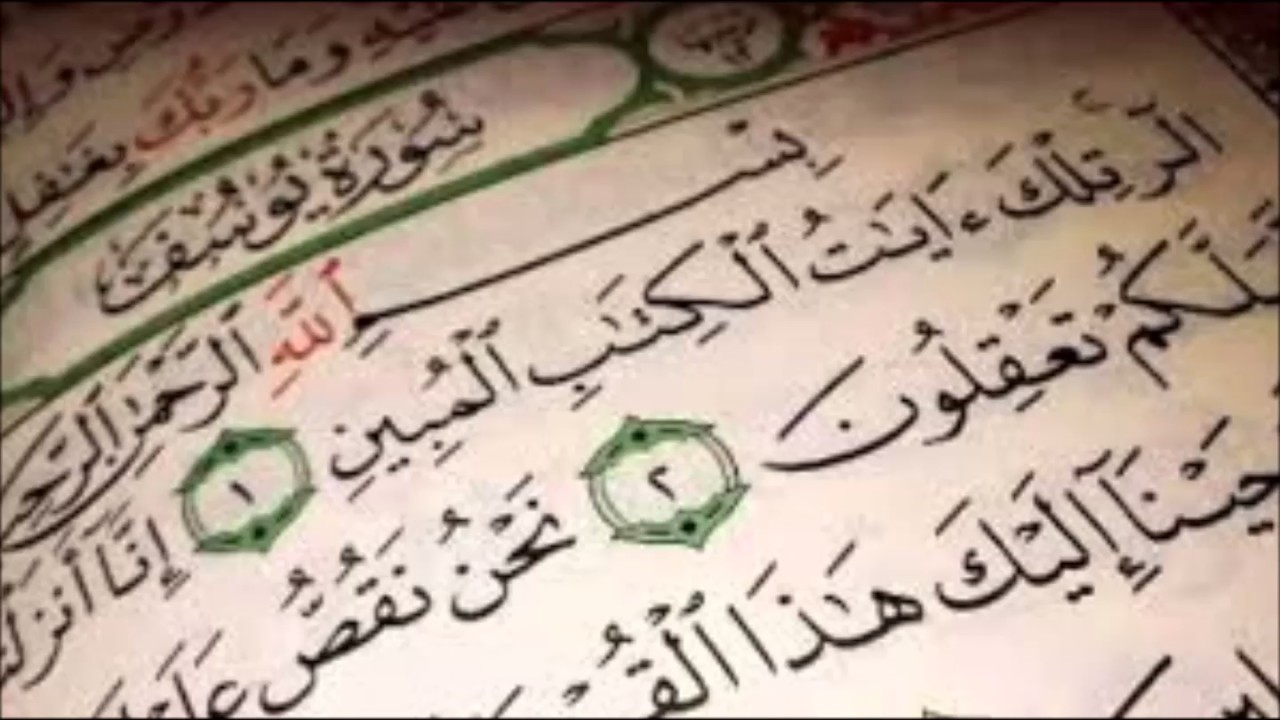 وما ربك بغفل
سُورَةُ يُوسُفَ
بِسْمِ ٱللَّهِ ٱلرَّحْمَٰنِ ٱلرَّحِي
الٓر تِلْكَ ءَايَٰتُ ٱلْكِتَٰبِ ٱلْمُبِينِ ١ إِنَّآ أَنزَلْ
لَّعَلَّكُمْ تَعْقِلُونَ ٢ نَحْنُ نَقُصُّ عَلَ
حَيْنَآ إِلَيْكَ هَٰذَا ٱلْقُرْ